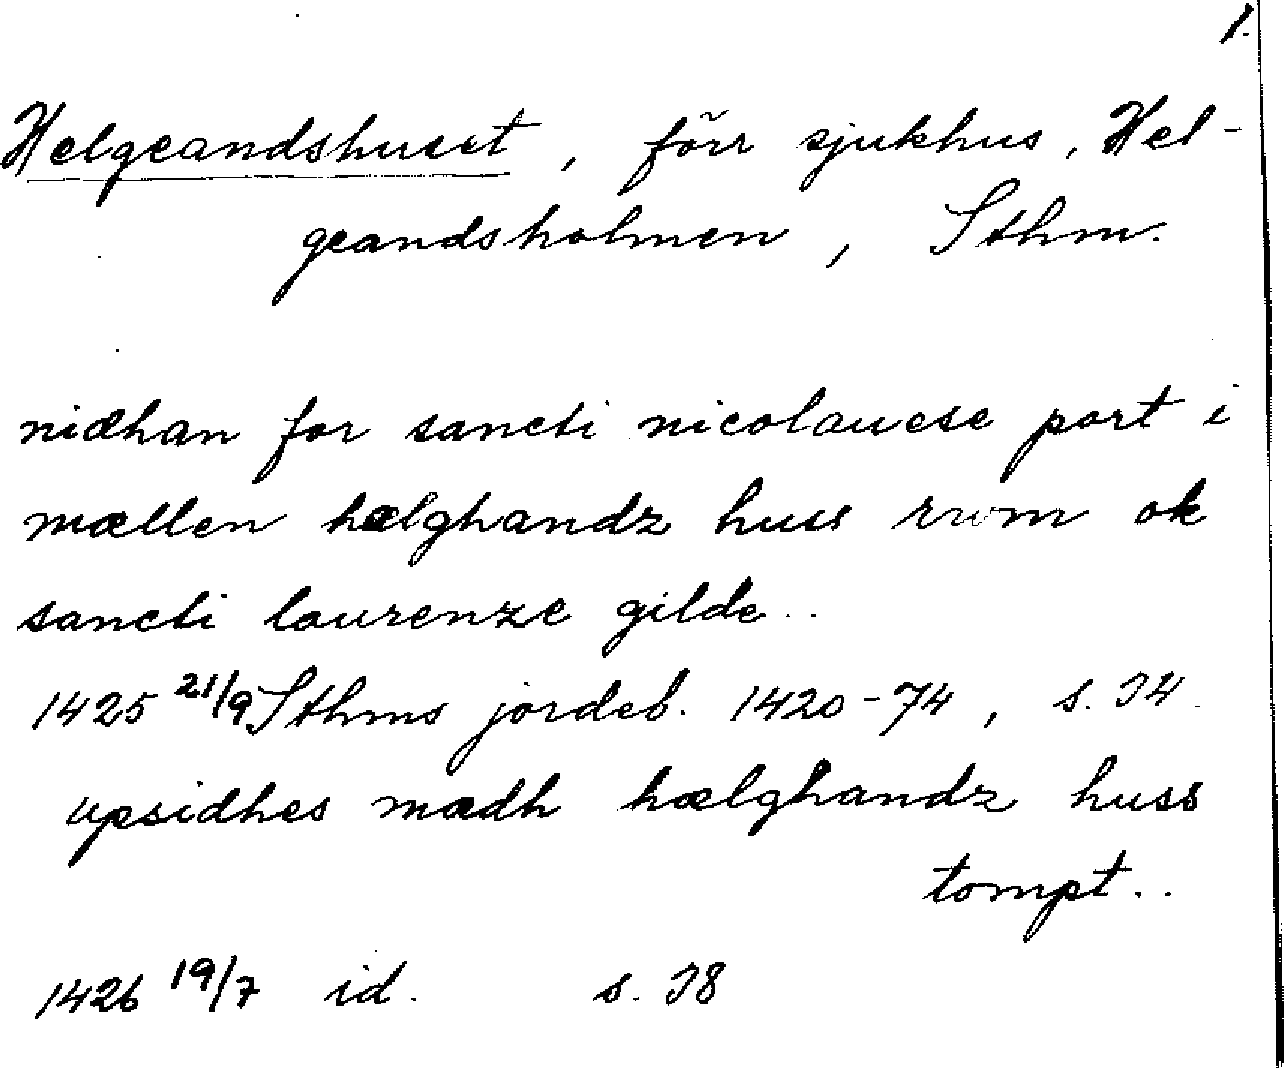 1.
Helgeandshuset, förr sjukhus, Hel-
geandsholmen, Sthm.
niæhan for sancti nicolauese port i
mællen hælghandz huss rwm ok
sancti laurenze gilde..
1425 21/9 Sthms jordeb. 1420-74, s. 34.
upsidhes mædh hælghandz huss
tompt..
1426 19/7 id. s. 38